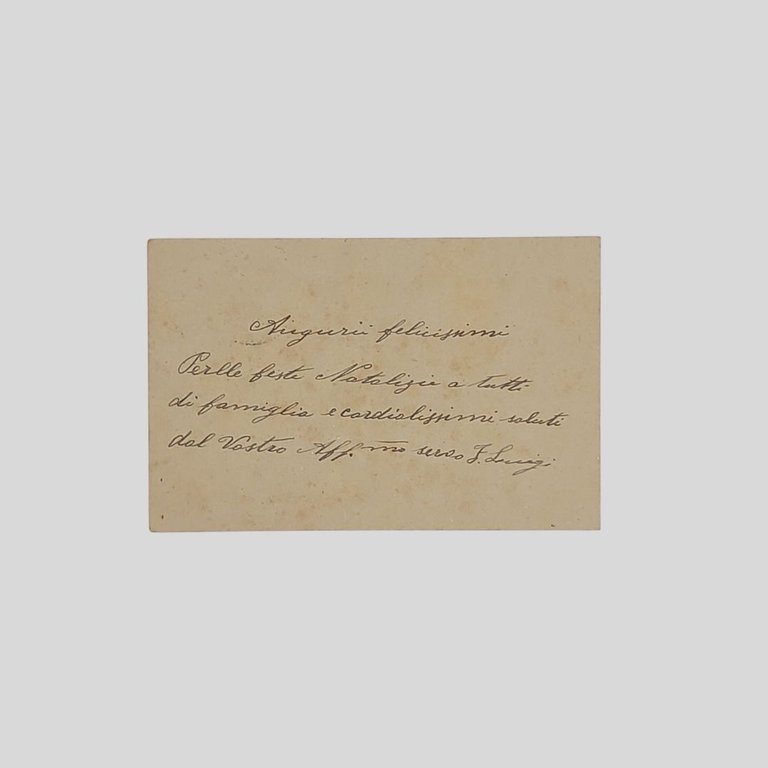 Augurii felicissimi
Perlle feste Natalizie a tutti
di famiglia e cordialissimi saluti
dal Vostro Aff.mo servo F. Luigi